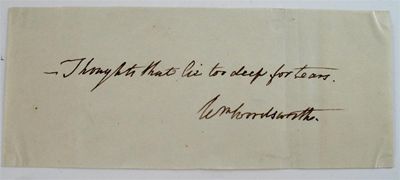 — Thoughts that lie too deep for tears.
Wm Wordsworth.